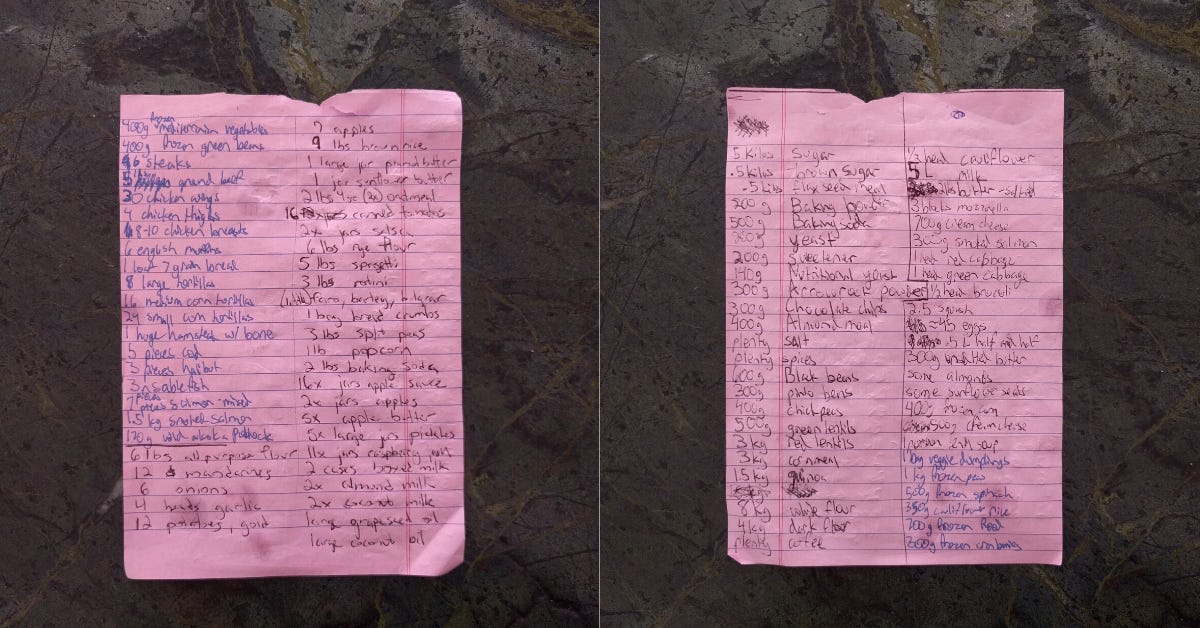 400g frozen mediterranean vegetables
400g frozen green beans
6 steaks
5 ground beef
30 chicken wings
4 chicken thighs
8-10 chicken breasts
6 english muffins
1 loaf 7 grain bread
8 large tortillas
16 medium corn tortillas
24 small corn tortillas
1 huge hamsted w/ bone
5 pieces cod
3 pieces halibut
3 sablefish
7 pieces salmon - mixed
1.5 kg smoked salmon
170g wild alaska Pollock
6 lbs all purpose flour
12 mandarines
6 onions
4 heads garlic
12 potatoes, gold
7 apples
9 lbs brown rice
1 large jar peanut butter
1 jar sunflower butter
2 lbs oatmeal
16 canned tomatos
2x jars salsa
6 lbs rye flour
5 lbs spagetti
3 lbs rotini
(little) farro, barley, bulgrar
1 bag bread crumbs
3 lbs split peas
1 lb popcorn
2 lbs baking soda
16x jars apple sauce
2x jars apples
5x apple butter
5x large jars pickles
11x jars raspberry
2 cases boxed milk
2x almond milk
2x coconut milk
large grapeseed oil
large coconut oil
5 Kilos Sugar
.5 kilos brown sugar
.5 kilos flax seed meal
300g Baking powder
500g Baking soda
yeast
200g Sweetener
140g Nutitional yeast
300g Arrowroot powder
300g Chocolate chips
400g Almond meal
plenty salt
plenty spices
600g Black beans
300g pinto beans
400g chickpeas
500g green lentils
3 kg red lentils
3 kg cornmeal
1.5 kg quinoa
8 kg white flour
4 kg dark flour
plenty coffee
1/3 head cauliflower
5 L milk
2 lbs butter - salted
3 blocks mozzarella
700g cream cheese
300g smoked salmon
1 head red cabbage
1 head green cabbage
1/2 head brocoli
2.5 squash
≈45 eggs
.5 L half and half
300g unsalted butter
some almonds
some sunflower seeds
400g
500g cream cheese
1 lentil soup
veggie dumplings
1 kg frozen peas
500g frozen spinach
350g cauliflower rice
700g frozen
300g frozen cranberries